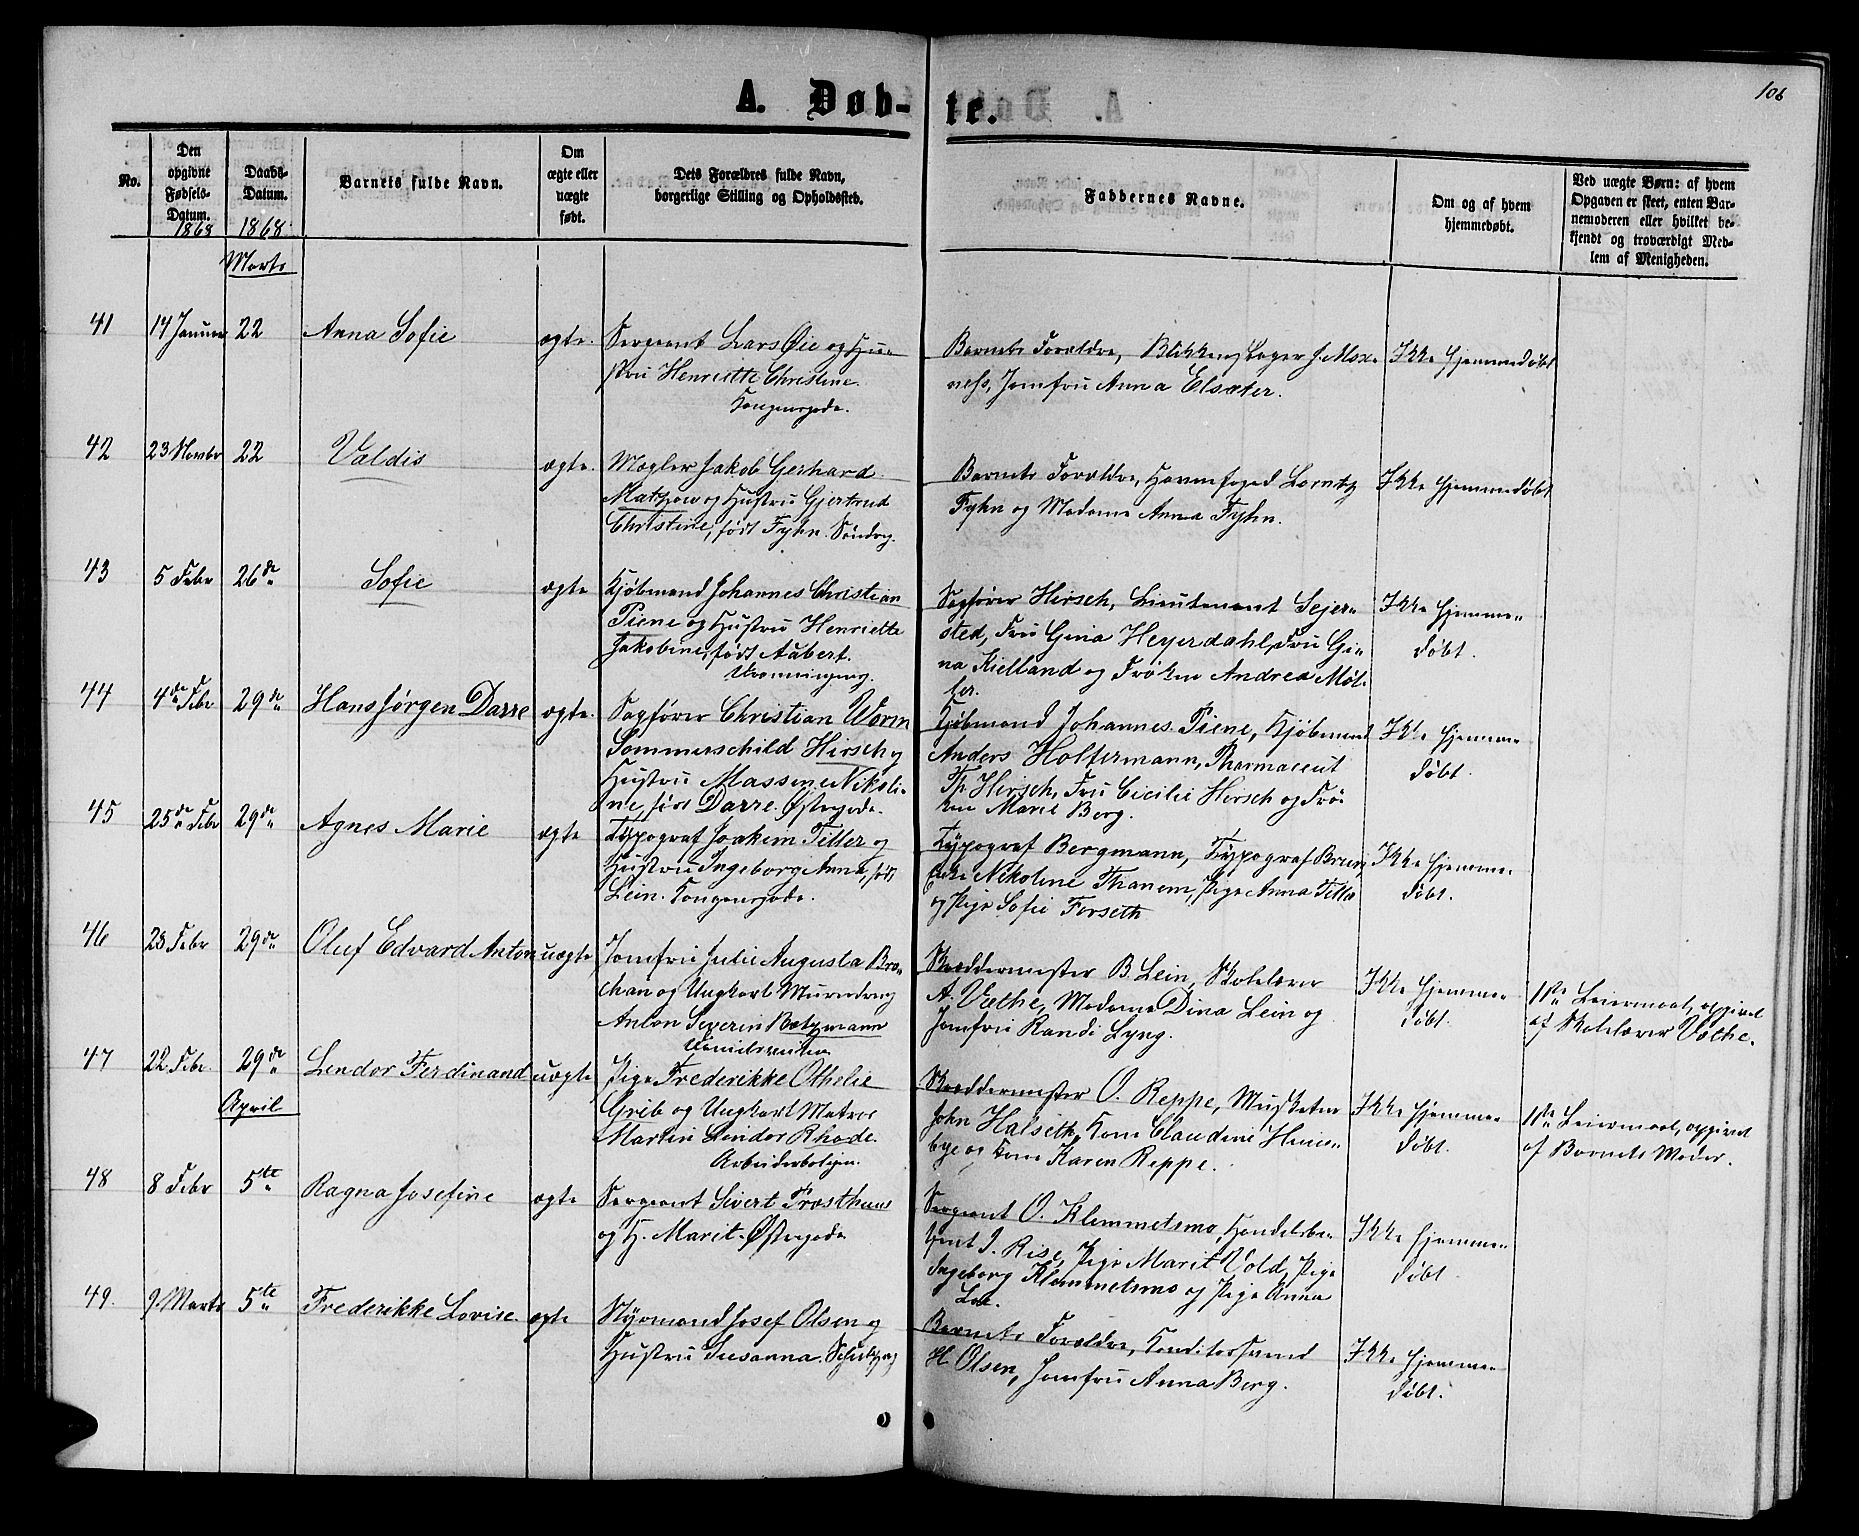 106
A. Døb-te.
No.
Den opgivne Fødsels-Datum.
1868
Daabs-Datum.
1868
Barnets fulde Navn.
Om ægte eller uægte født.
Dets Forældres fulde Navn, borgerlige Stilling og Opholdssted.
Faddernes Navne.
Om og af hvem hjemmedøbt.
Ved uægte Børn: af hvem Opgaven er skeet, enten Barnemoderen eller hvilket bekjendt og troværdigt Medlem af Menigheden.
Marts
41 14 Januar 22 Anna Sofie ægte.
Sergeant Lars Øie og Hu-
stru Henriette Christine.
Kongensgade.
Barnets Forældre, Blikkenslager J. Mox-
ness, Jomfru Anna Elsæter.
Ikke hjemmedøbt
42 23 Novbr 22 Valdis ægte.
Mægler Jakob Gerhard
Matzow og Hustru Gjertrud
Christine, født Fyhn. Søndrg.
Barnets Forældre, Havnefoged Lorntz
Fyhn og Madame Anna Fyhn.
Ikke hjemmedøbt
43 5 Febr 26de Sofie ægte
Kjøbmand Johannes Christian
Piene og Hustru Henriette
Jakobine, født Aubert.
Sagfører Hirsch, Lieutenant Sejer-
sted, Fru Gina Heyerdahl, Fru Gi-
na Kielland og Frøken Andrea Møl-
ler.
Ikke hjemme-
døbt.
44 4de Febr 29de Hans Jørgen Darre ægte.
Sagfører Christian Worm
Sommerschild Hirsch og
Hustru Massine Nikoli-
ne, født Darre. Østergade.
Kjøbmand Johannes Piene, Kjøbmand
Anders Holtermann, Pharmaceut
Th. Hirsch, Fru Cicilie Hirsch og Frø-
ken Marie Berg.
Ikke hjemme-
døbt.
45 25de Febr 29de Agnes Marie ægte
Typograf Joakim Tiller og
Hustru Ingeborg Anna, født
Lein. Kongensgade.
Typograf Bergmann, Typograf Brun,
Enke Nikoline Thanem, Pige Anna Tiller
og Pige Sofie Forseth
Ikke hjemme-
døbt.
46 23 Febr 29de Oluf Edvard Anton uægte
Jomfru Julie Augusta Bro-
chan og Ungkarl Murerdreng
Anton Severin Betzmann
Skræddermester B. Lein, Skolelærer
A. Væthe, Madame Dina Lein og
Jomfru Randi Lyng.
Ikke hjemme-
døbt.
1ste Leiermaal, opgivet
af Skolelærer Væthe.
47 22 Febr. 29de Lendor Ferdinand uægte
Pige Frederikke Othelie
Grib og Ungkarl Matros
Martin Lendor Rhode.
Arbeiderboligen.
Skræddermester O. Reppe, Musketer
John Halseth, Kone Claudine Heim-
bye og Kone Karen Reppe.
Ikke hjemme-
døbt.
1ste Leiermaal, opgivet
af Barnets Moder.
April
48 8 Febr 5te Ragna Josefine ægte
Sergeant Sivert Frosthuus
og H. Marit. Østergade
Sergeant O. Klemmetsmo, Handelsbe-
tjent J. Rise, Pige Marit Vold, Pige
Ingeborg Klemmetsmo og Pige Anna
Lea.
Ikke hjemme-
døbt.
49. 9 Marts 5te Frederikke Lovise. ægte
Styrmand Josef Olsen og
Hustru Susanna.
Barnets Forældre, Konditorsvend
H. Olsen, Jomfru Anna Berg.
Ikke hjemme-
døbt.